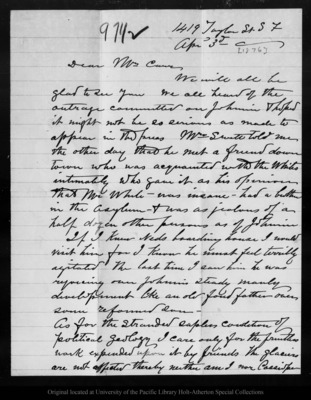 974✓
1419 Taylor St. S F
Apr 3rd
[1876]
Dear Mrs Carr,
We will all be
glad to see you We all heard of the
outrage committed on Johnnie & hoped
it might not be so serious as made to
appear in the press Mrs Swett told me
the other day that he met a friend down
town who was acquainted with the Whites
intimately who gave it as his opinion
that Mr White was insane had a brother
in the asylum & was as jealous of a
half dozen other persons as of Johnnie
If I knew Neds boarding house I would
visit him for I know he must feel terribly
agitated The last time I saw him he was
rejoicing over Johnnie steady manly
development like an old fond father over
some reformed son
As for the stranded sapless condition of
political Geology I care only for the fruitless
work expended upon it by friends the glaciers
are not affected thereby neither am I nor Cassiope
Original located at University of the Pacific Library Holt-Atherton Special Collections